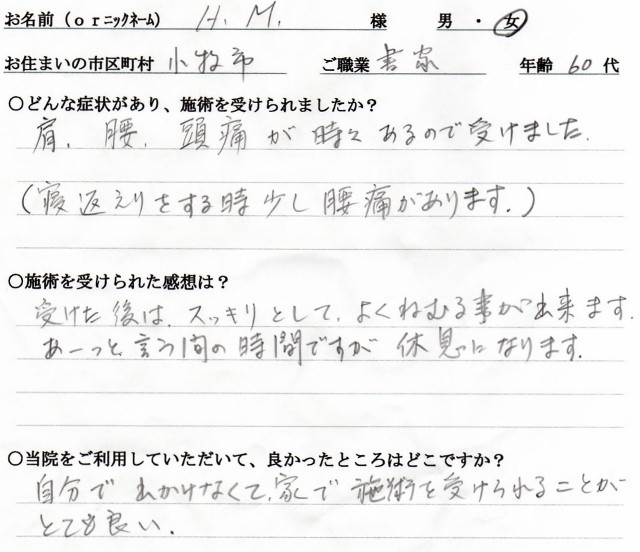 お名前（ｏｒﾆｯｸﾈｰﾑ） H. M. 様 男 ・ 女
お住まいの市区町村 小牧市 ご職業 書家 年齢 60 代
○どんな症状があり、施術を受けられましたか？
肩、腰、頭痛が時々あるので受けました。
（寝返えりをする時少し腰痛があります。）
○施術を受けられた感想は？
受けた後は、スッキリとして、よくねむる事が出来ます。
あーっと言う間の時間ですが休息になります。
○当院をご利用していただいて、良かったところはどこですか？
自分で出かけなくて、家で施術を受けられることが
とても良い。